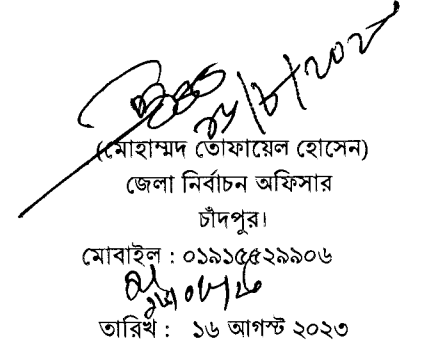 (মোহাম্মদ তোফায়েল হোসেন)
জেলা নির্বাচন অফিসার
চাঁদপুর।
মোবাইল : ০১৯১৫৫২৯৯০৬
তারিখ : ১৬ আগস্ট ২০২৩